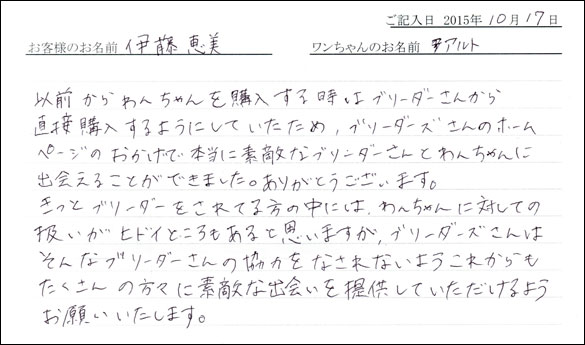 ご記入日 2015年10月17日
お客様のお名前 伊藤 恵美 ワンちゃんのお名前 アルト
以前からわんちゃんを購入する時はブリーダーさんから
直接購入するようにしていたため、ブリーダーズさんのホーム
ページのおかげで本当に素敵なブリーダーさんとわんちゃんに
出会えることができました。ありがとうございます。
きっとブリーダーをされてる方の中には、わんちゃんに対しての
扱いがヒドイところもあると思いますが、ブリーダーズさんは
そんなブリーダーさんの協力をなされないようこれからも
たくさんの方々に素敵な出会いを提供していただけるよう
お願いいたします。